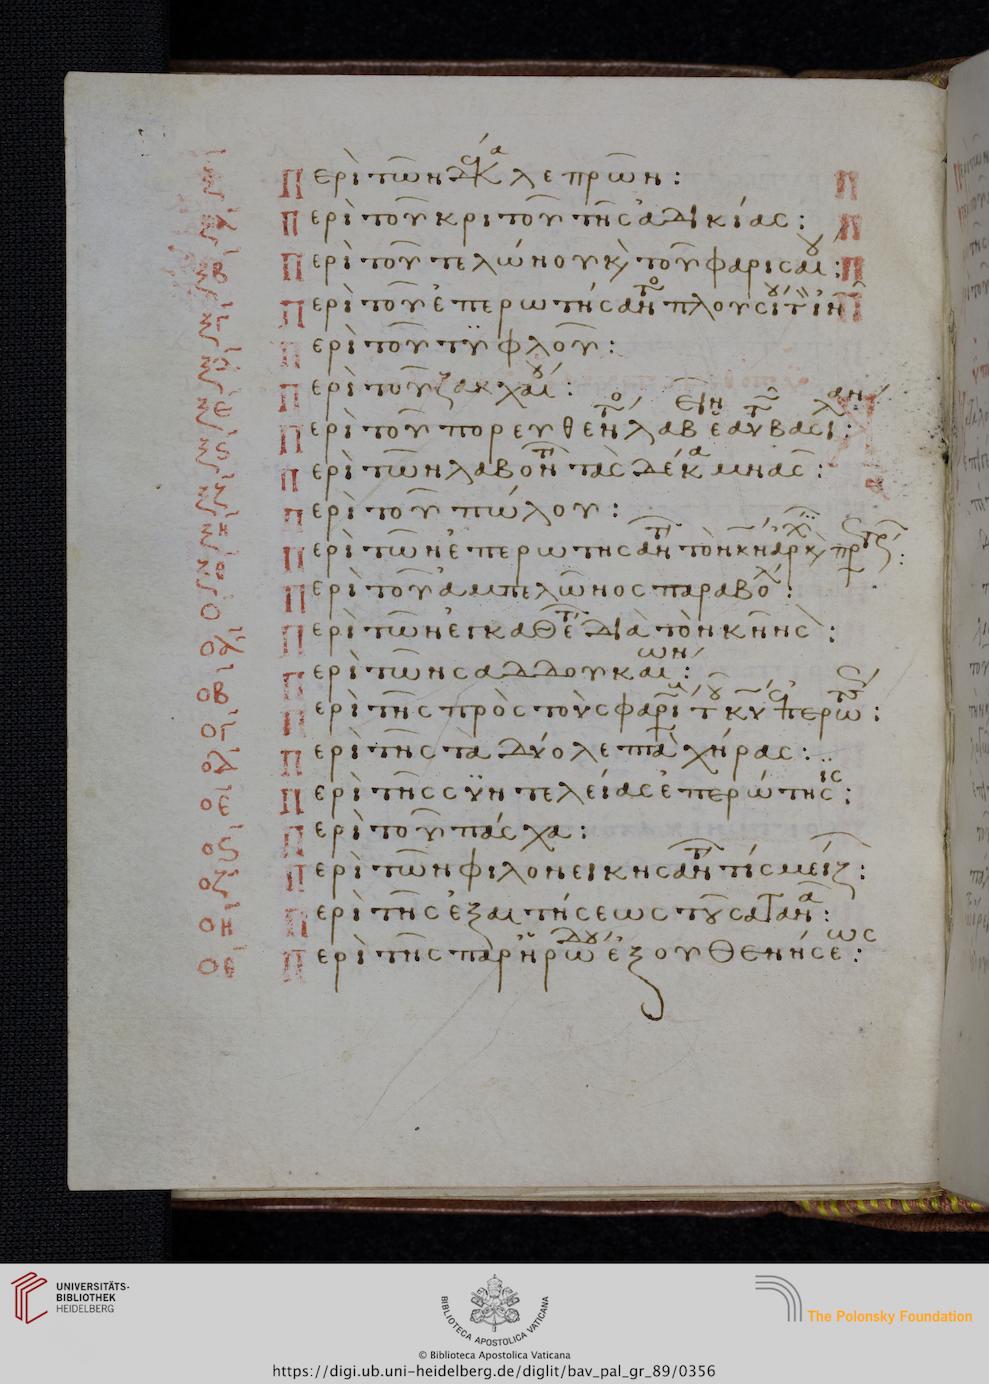 ξ Περὶ τῶν δέκα λεπρῶν:
ξα Περὶ τοῦ κριτοῦ τῆς ἀδικίας:
ξβ Περὶ τοῦ τελώνου κ, τοῦ φαρισαίου:
ξγ Περὶ τοῦ ἐπερωτήσαντο πλουσίου τ ιν
ξδ Περὶ τοῦ τυφλοῦ:
ξε Περὶ τοῦ ζακχαίου:
ξϛ Περὶ τοῦ πορευθέντο λαβεῖν ἑαυτῶ βασιλείαν:
ξζ Περὶ τῶν λαβόντ τὰς δέκα μνᾶς:
ξη Περὶ τοῦ πώλου:
ξθ Περὶ τῶν ἐπερωτησάντ τὸν κν
ο Περὶ τοῦ ἀμπελῶνος παραβολ:
οα Περὶ τῶν ἐγκαθέτ διὰ τὸν κῆνς:
οβ Περὶ τῶν σαδδουκαίων:
ογ Περὶ τῆς πρὸς τοὺς φαρι τ κυ περω:
οδ Περὶ τῆς τὰ δύο λεπτὰ χήρας:
οε Περὶ τῆς συντελείας ἐπερώτησις:
οϛ Περὶ τοῦ πάσχα:
οζ Περὶ τῶν φιλονεικησάντ τίς μείζ:
οη Περὶ τῆς ἐξαιτήσεως τοῦ σατανᾶ:
οθ Περὶ τῆς παρ ἡρώδου ἐξουθενήσεως:
UNIVERSITÄTS-
BIBLIOTHEK
HEIDELBERG
BIBLIOTECA APOSTOLICA VATICANA
The Polonsky Foundation
© Biblioteca Apostolica Vaticana
https://digi.ub.uni-heidelberg.de/diglit/bav_pal_gr_89/0356